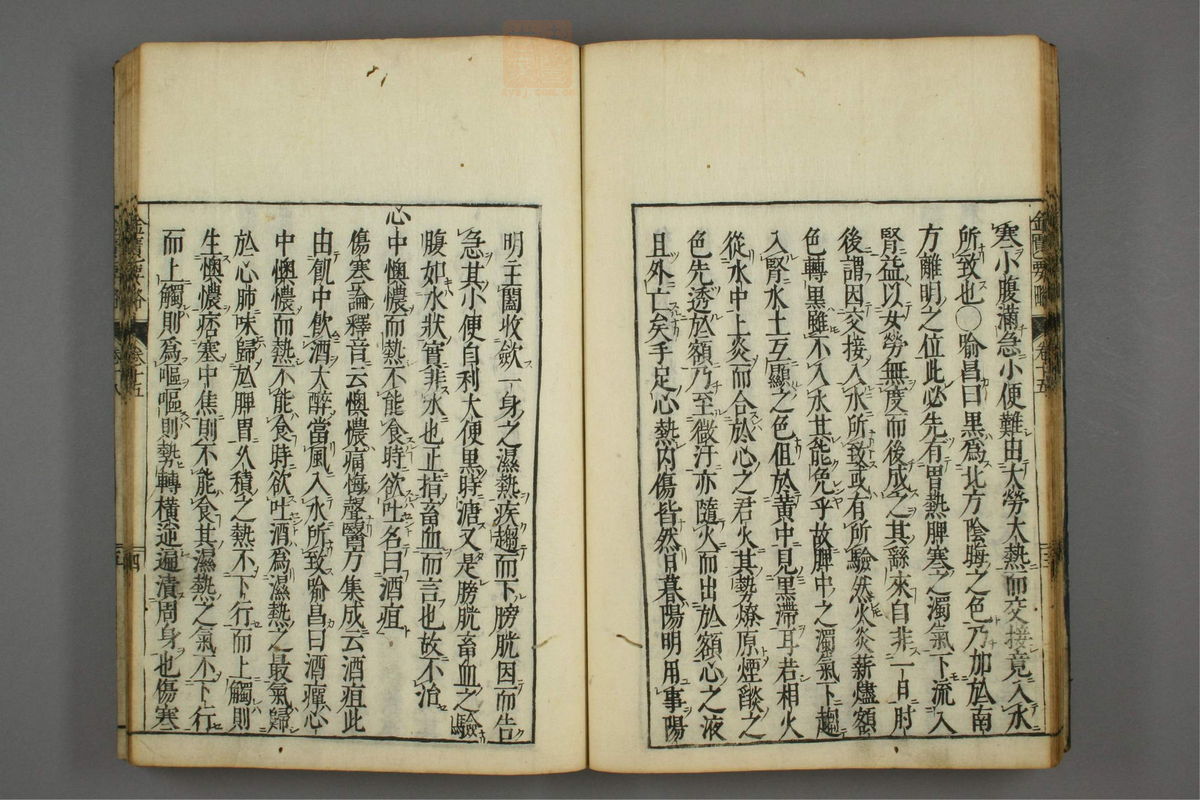 寒小腹滿急小便難由大勞大熱而交接竟入水
所致也○喻昌曰黑爲北方陰晦之色乃加於南
方離明之位此必先有胃熱脾寒之濁氣下流入
腎益以女勞無度而後成之其繇來自非一日肘
後謂因交接入水所致或有所驗然火炎薪燼額
色轉黑雖不入水其能免乎故脾中之濁氣下趨
入腎水土互顯之色但於黄中見黑滯耳若相火
從水中上炎而合於心之君火其勢燎原煙燄之
色先透於額乃至微汗亦隨火而出於額心之液
且外亡矣手足心熱内傷皆然日暮陽明用事陽
明主闔收斂一身之濕熱疾趨而下膀胱因而告
急其小便自利大便黒時溏又是膀胱畜血之驗
腹如水狀實非水也正指畜血而言也故不治
心中懊憹而熱不能食時欲吐名曰酒疸
傷寒論釋音云懊憹痛悔聲醫方集成云酒疸此
由飢中飲酒大醉當風入水所致喻昌曰酒癉心
中懊憹而熱不能食時欲吐酒爲濕熱之最氣歸
於心肺味歸於脾胃久積之熱不下行而上觸則
生懊憹痞塞中焦則不能食其濕熱之氣不下行
而上觸則爲嘔嘔則勢轉横逆遍漬周身也傷寒
金匱要略
卷十五
四